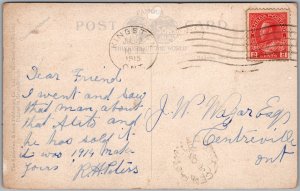 POST CARD
THROUGHOUT THE WORLD
1915
ONT
Dear Friend
I went and say
that man about
that and
he has sold it
it was 1914 make
yours R. H. Peters
J. W. Wagar Esq
Centreville
ont